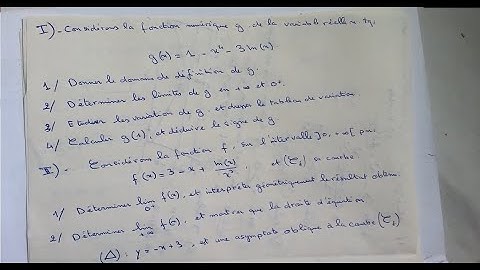 I) - Considérons la fonction numérique g de la variable réelle x tq.
g(x) = 1 - x⁴ - 3 ln(x)
1/ Donner le domaine de définition de g.
2/ Déterminer les limites de g en +∞ et 0⁺.
3/ Etudier les variation de g, et dresser le tableau de variation.
4/ Calculer g(1), et déduire le signe de g.
II - Considérons la fonction f, sur l'intervalle ]0, +∞[ par
f(x) = 3 - x + ln(x)/x³, et (Cf) sa courbe
1/ Déterminer lim 0⁺ f(x), et interpréte géométriquement le résultat obtenu.
2/ Déterminer lim +∞ f(x), et montrer que la droite d'équation
(Δ): y = -x + 3, est une asymptote oblique à la courbe (Cf)